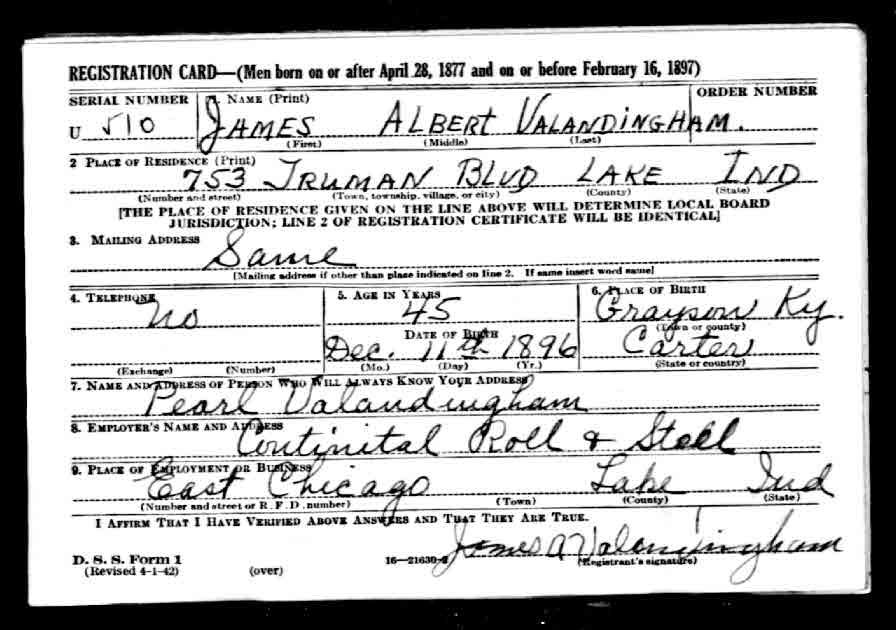 REGISTRATION CARD—(Men born on or after April 28, 1877 and on or before February 16, 1897)
SERIAL NUMBER 1. NAME (Print) ORDER NUMBER
U 510 JAMES ALBERT VALANDINGHAM.
(First) (Middle) (Last)
2 PLACE OF RESIDENCE (Print)
753 TRUMAN BLVD LAKE IND
(Number and street) (Town, township, village, or city) (County) (State)
[THE PLACE OF RESIDENCE GIVEN ON THE LINE ABOVE WILL DETERMINE LOCAL BOARD
JURISDICTION; LINE 2 OF REGISTRATION CERTIFICATE WILL BE IDENTICAL]
3. MAILING ADDRESS
Same
[Mailing address if other than place indicated on line 2. If same insert word same]
4. TELEPHONE 5. AGE IN YEARS 6. PLACE OF BIRTH
no 45 Grayson Ky.
DATE OF BIRTH (Town or county)
Dec. 11th 1896 Carter
(Exchange) (Number) (Mo.) (Day) (Yr.) (State or country)
7. NAME AND ADDRESS OF PERSON WHO WILL ALWAYS KNOW YOUR ADDRESS
Pearl Valandingham
8. EMPLOYER'S NAME AND ADDRESS
Continital Roll & Steel
9. PLACE OF EMPLOYMENT OR BUSINESS
East Chicago Lake Ind
(Number and street or R. F. D. number) (Town) (County) (State)
I AFFIRM THAT I HAVE VERIFIED ABOVE ANSWERS AND THAT THEY ARE TRUE.
James A Valandingham
D. S. S. Form 1 16—21630-2 (Registrant's signature)
(Revised 4-1-42) (over)